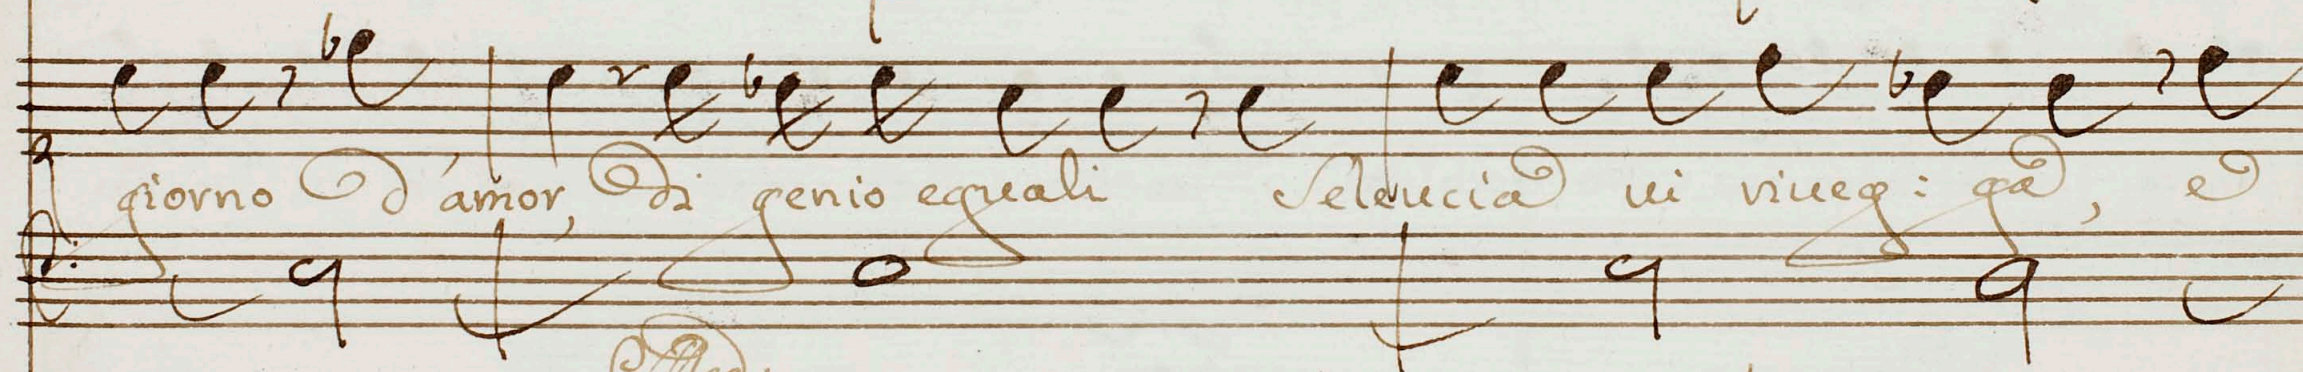 giorno d'amor, di genio equali Seleucia ui viueg: ga, e